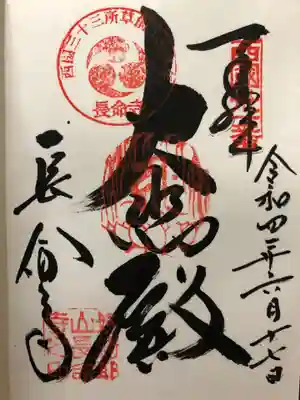 奉拝
西国三十一番
令和四年六月十七日
大悲殿
西国三十三所草創
長命寺
長命寺